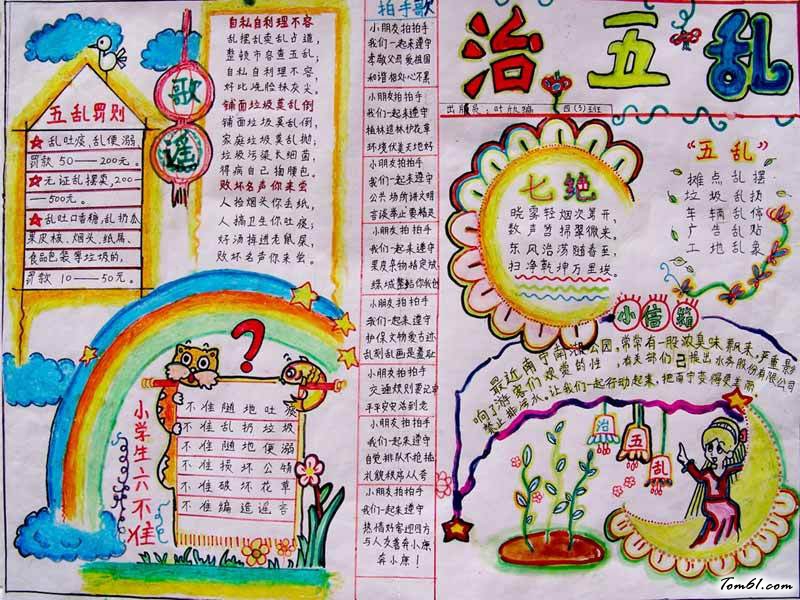 治五乱
出版员：
四（5）班
五乱罚则
乱吐痰、乱便溺
罚款50——200元。
无证乱摆卖，200—
—500元。
乱吐口香糖，乱扔瓜
果皮核、烟头、纸屑、
食品包装等垃圾的，
罚款10——50元。
歌谣
自私自利理不容
乱摆乱卖乱占道，
整顿市容查五乱；
自私自利理不容
好比烧脸抹灰尖，
铺面垃圾莫乱倒
铺面垃圾莫乱倒，
家庭垃圾莫乱抛；
垃圾污染大细菌，
得病自己掏腰包。
败坏名声你来蛍
人抬烟头你丢纸，
人搞卫生你吐痰；
好汤掉进老鼠屎，
败坏名声你来蛍。
拍手歌
小朋友拍拍手
我们一起来遵守
孝敬父母爱祖国
和谐相处心不累
小朋友拍拍手
我们一起来遵守
植林造林护花草
环境优美天地好
小朋友拍拍手
我们一起来遵守
公共场所讲文明
言谈举止要端庄
小朋友拍拍手
我们一起来遵守
果皮杂物指定放
绿城整洁你我创
小朋友拍拍手
我们一起来遵守
护保文物爱古迹
乱刻乱画是羞耻
小朋友拍拍手
交通规则要记牢
平平安安活到老
小朋友拍拍手
我们一起来遵守
自觉排队不抢插
礼貌秩序人人夸
小朋友拍拍手
我们一起来遵守
热情好客迎四方
与人友善奔小康
奔小康！
七绝
晓雾轻烟次第开，
数声笛捐翠微来。
东风浩荡随春至，
扫净乾坤万里埃。
“五乱”
摊点乱摆
垃圾乱扔
车辆乱停
广告乱贴
工地乱象
小信箱
最近南宁南湖公园，常常有一股浓臭味飘来，严重影
响了游客们观赏的性，有关部们已提出水务股份有限公司
禁止排污水，让我们一起行动起来，把南宁变得更美丽。
治五乱
小学生六不准
不准随地吐痰
不准乱扔垃圾
不准随地便溺
不准损坏公物
不准破坏花草
不准编造谣言
Tom61.com